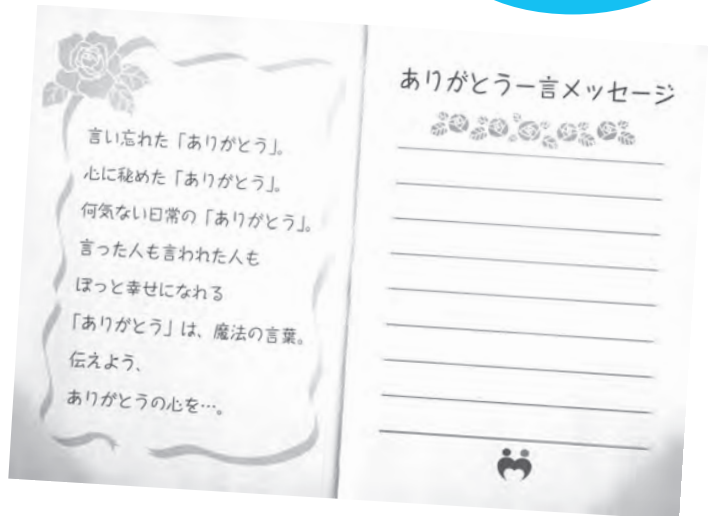 言い忘れた「ありがとう」。
心に秘めた「ありがとう」。
何気ない日常の「ありがとう」。
言った人も言われた人も
ぽっと幸せになれる
「ありがとう」は、魔法の言葉。
伝えよう、
ありがとうの心を…。
ありがとう一言メッセージ